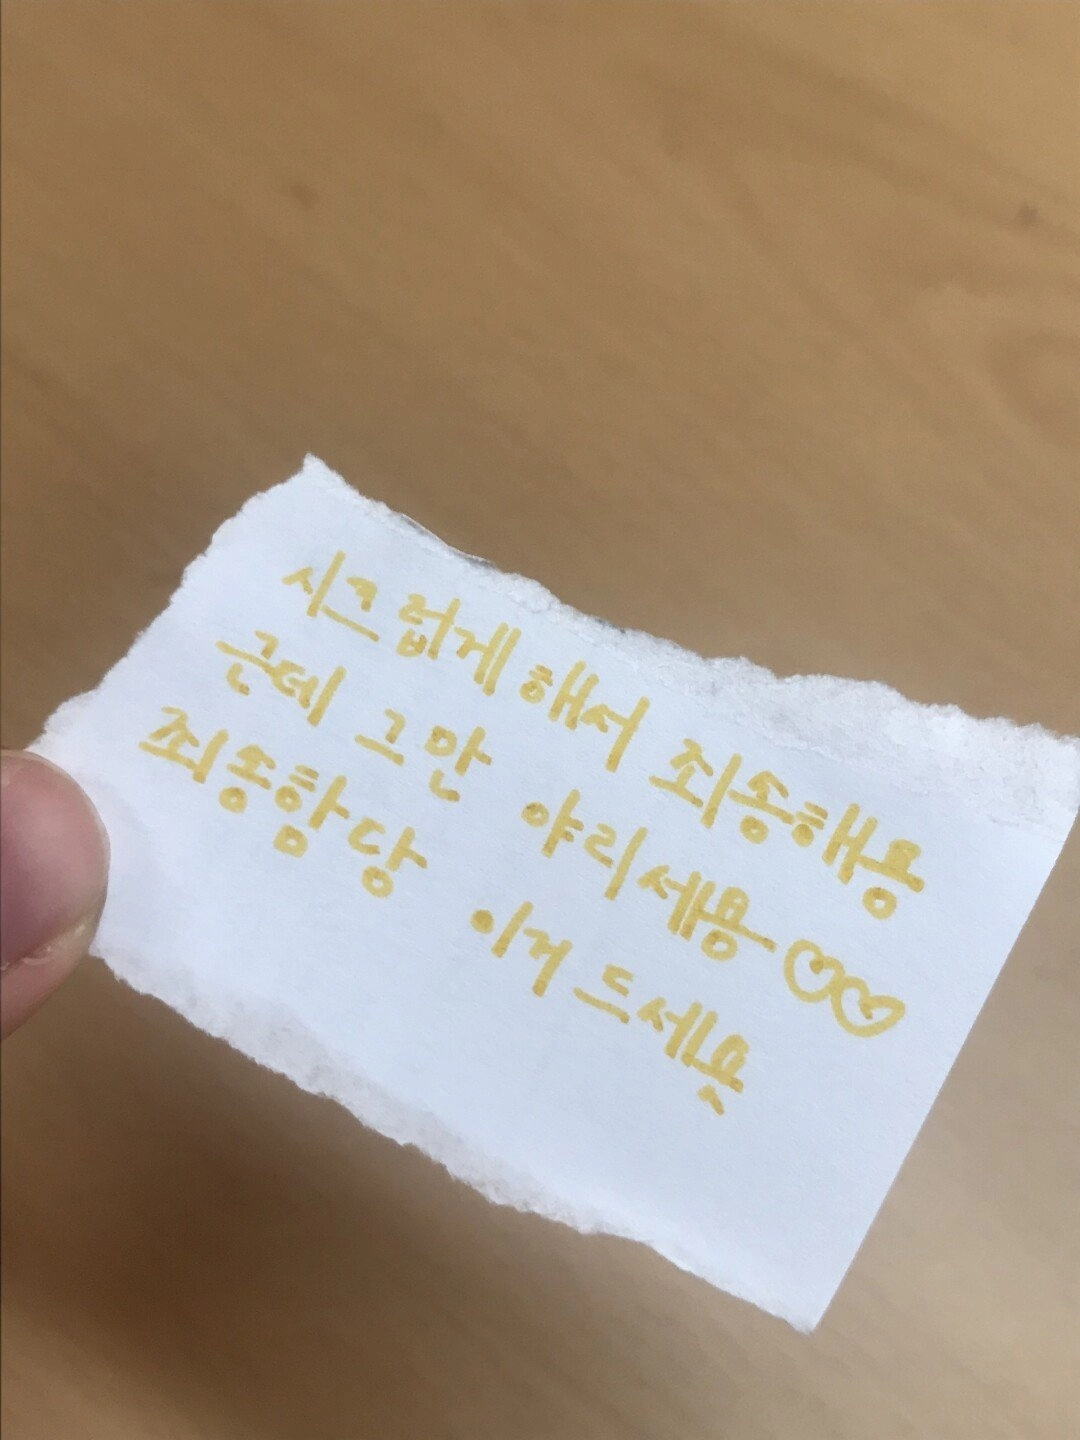 시크럽게 해서 죄송해용
근데 그만 야리세용 ♡♡
죄송함당 이거 드세욧